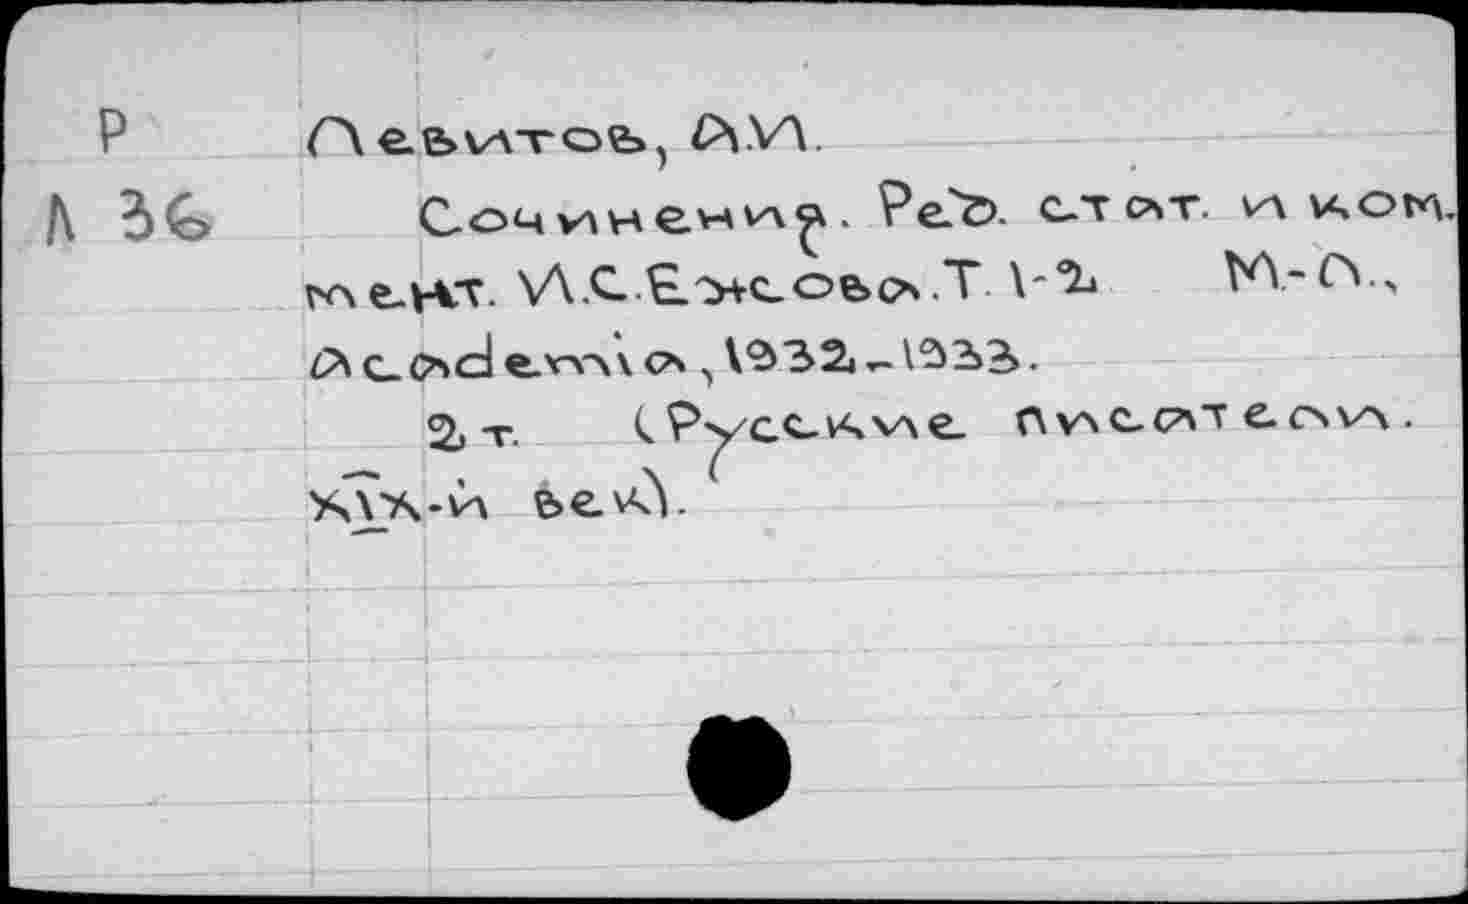 Р Левитов, А.И.
Л 36 Сочинения. Ред. стат. и ком.
мент. И.С.Ежсова.Т.1-2 М.-Л.,
Academia, 1932-1933.
2 т. (Русские писатели.
XIX-й век).